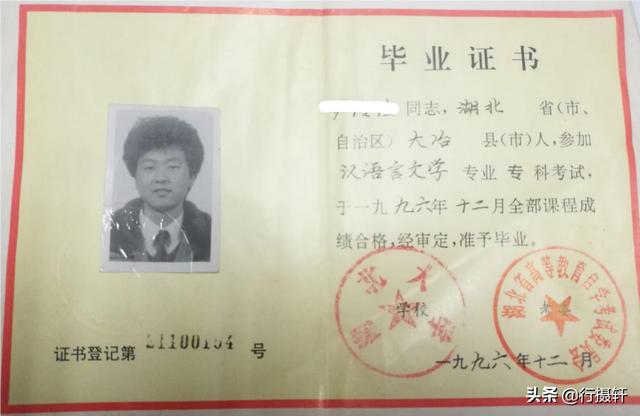 毕业证书
同志，湖北 省(市、
自治区) 大冶 县(市)人，参加
汉语言文学 专业 专 科考试，
于一九九六年十二月全部课程成
绩合格，经审定，准予毕业。
湖北大学
学校
湖北省高等教育自学考试委员会
证书登记第 21100154 号
一九九六年十二月
头条 @行摄轩